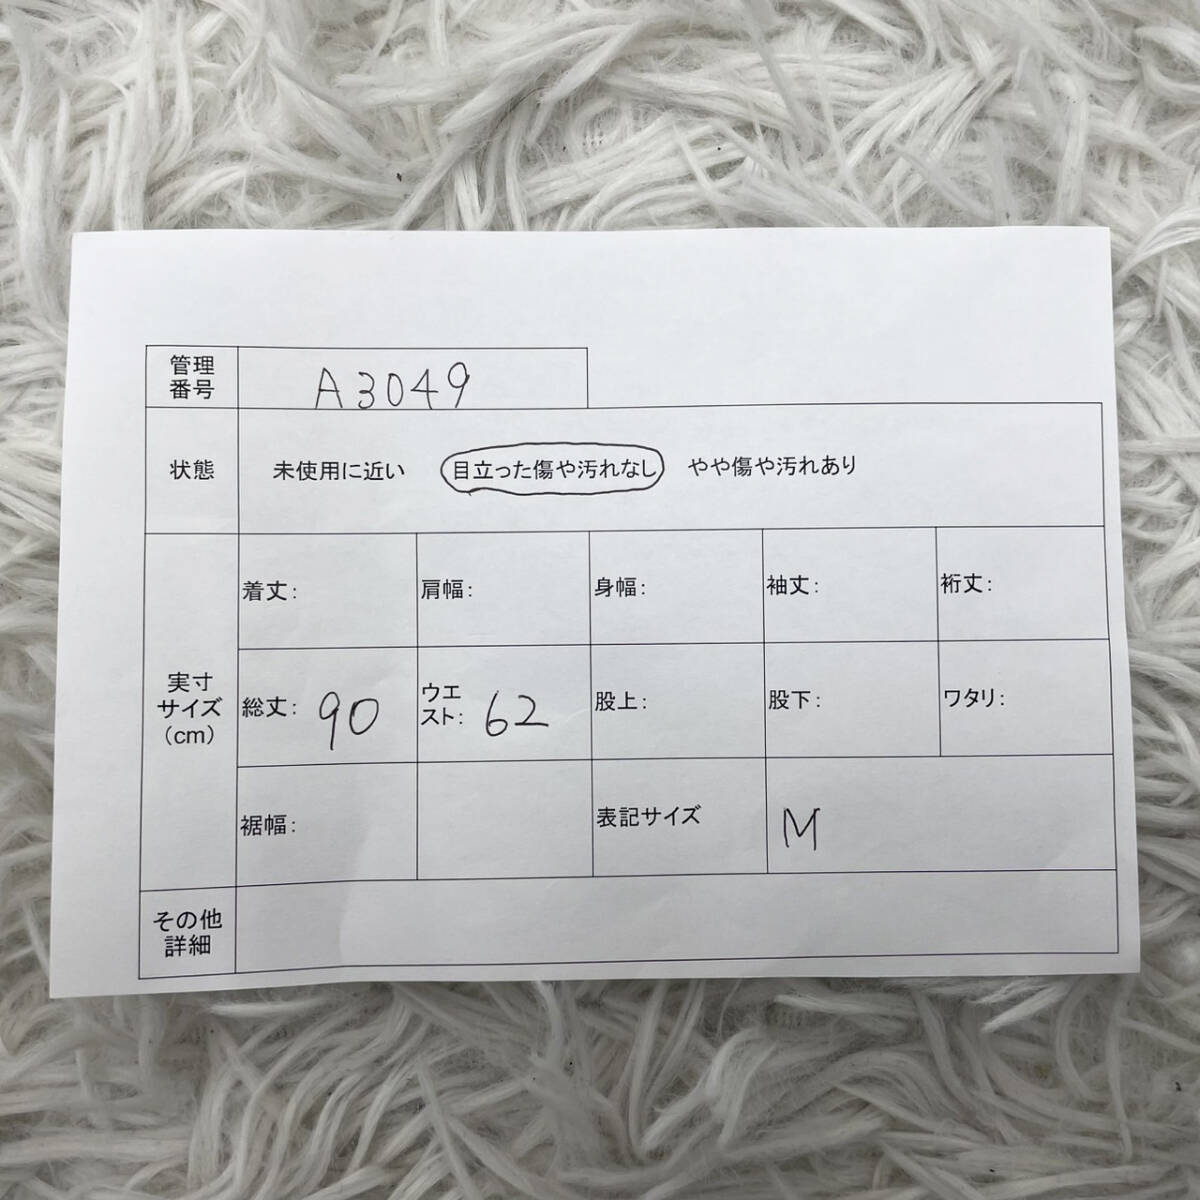 管理
番号
A3049
状態
未使用に近い 目立った傷や汚れなし やや傷や汚れあり
実寸
サイズ
(cm)
着丈: 肩幅: 身幅: 袖丈: 裄丈:
総丈: 90
ウエ
スト: 62
股上: 股下: ワタリ:
裾幅:
表記サイズ M
その他
詳細